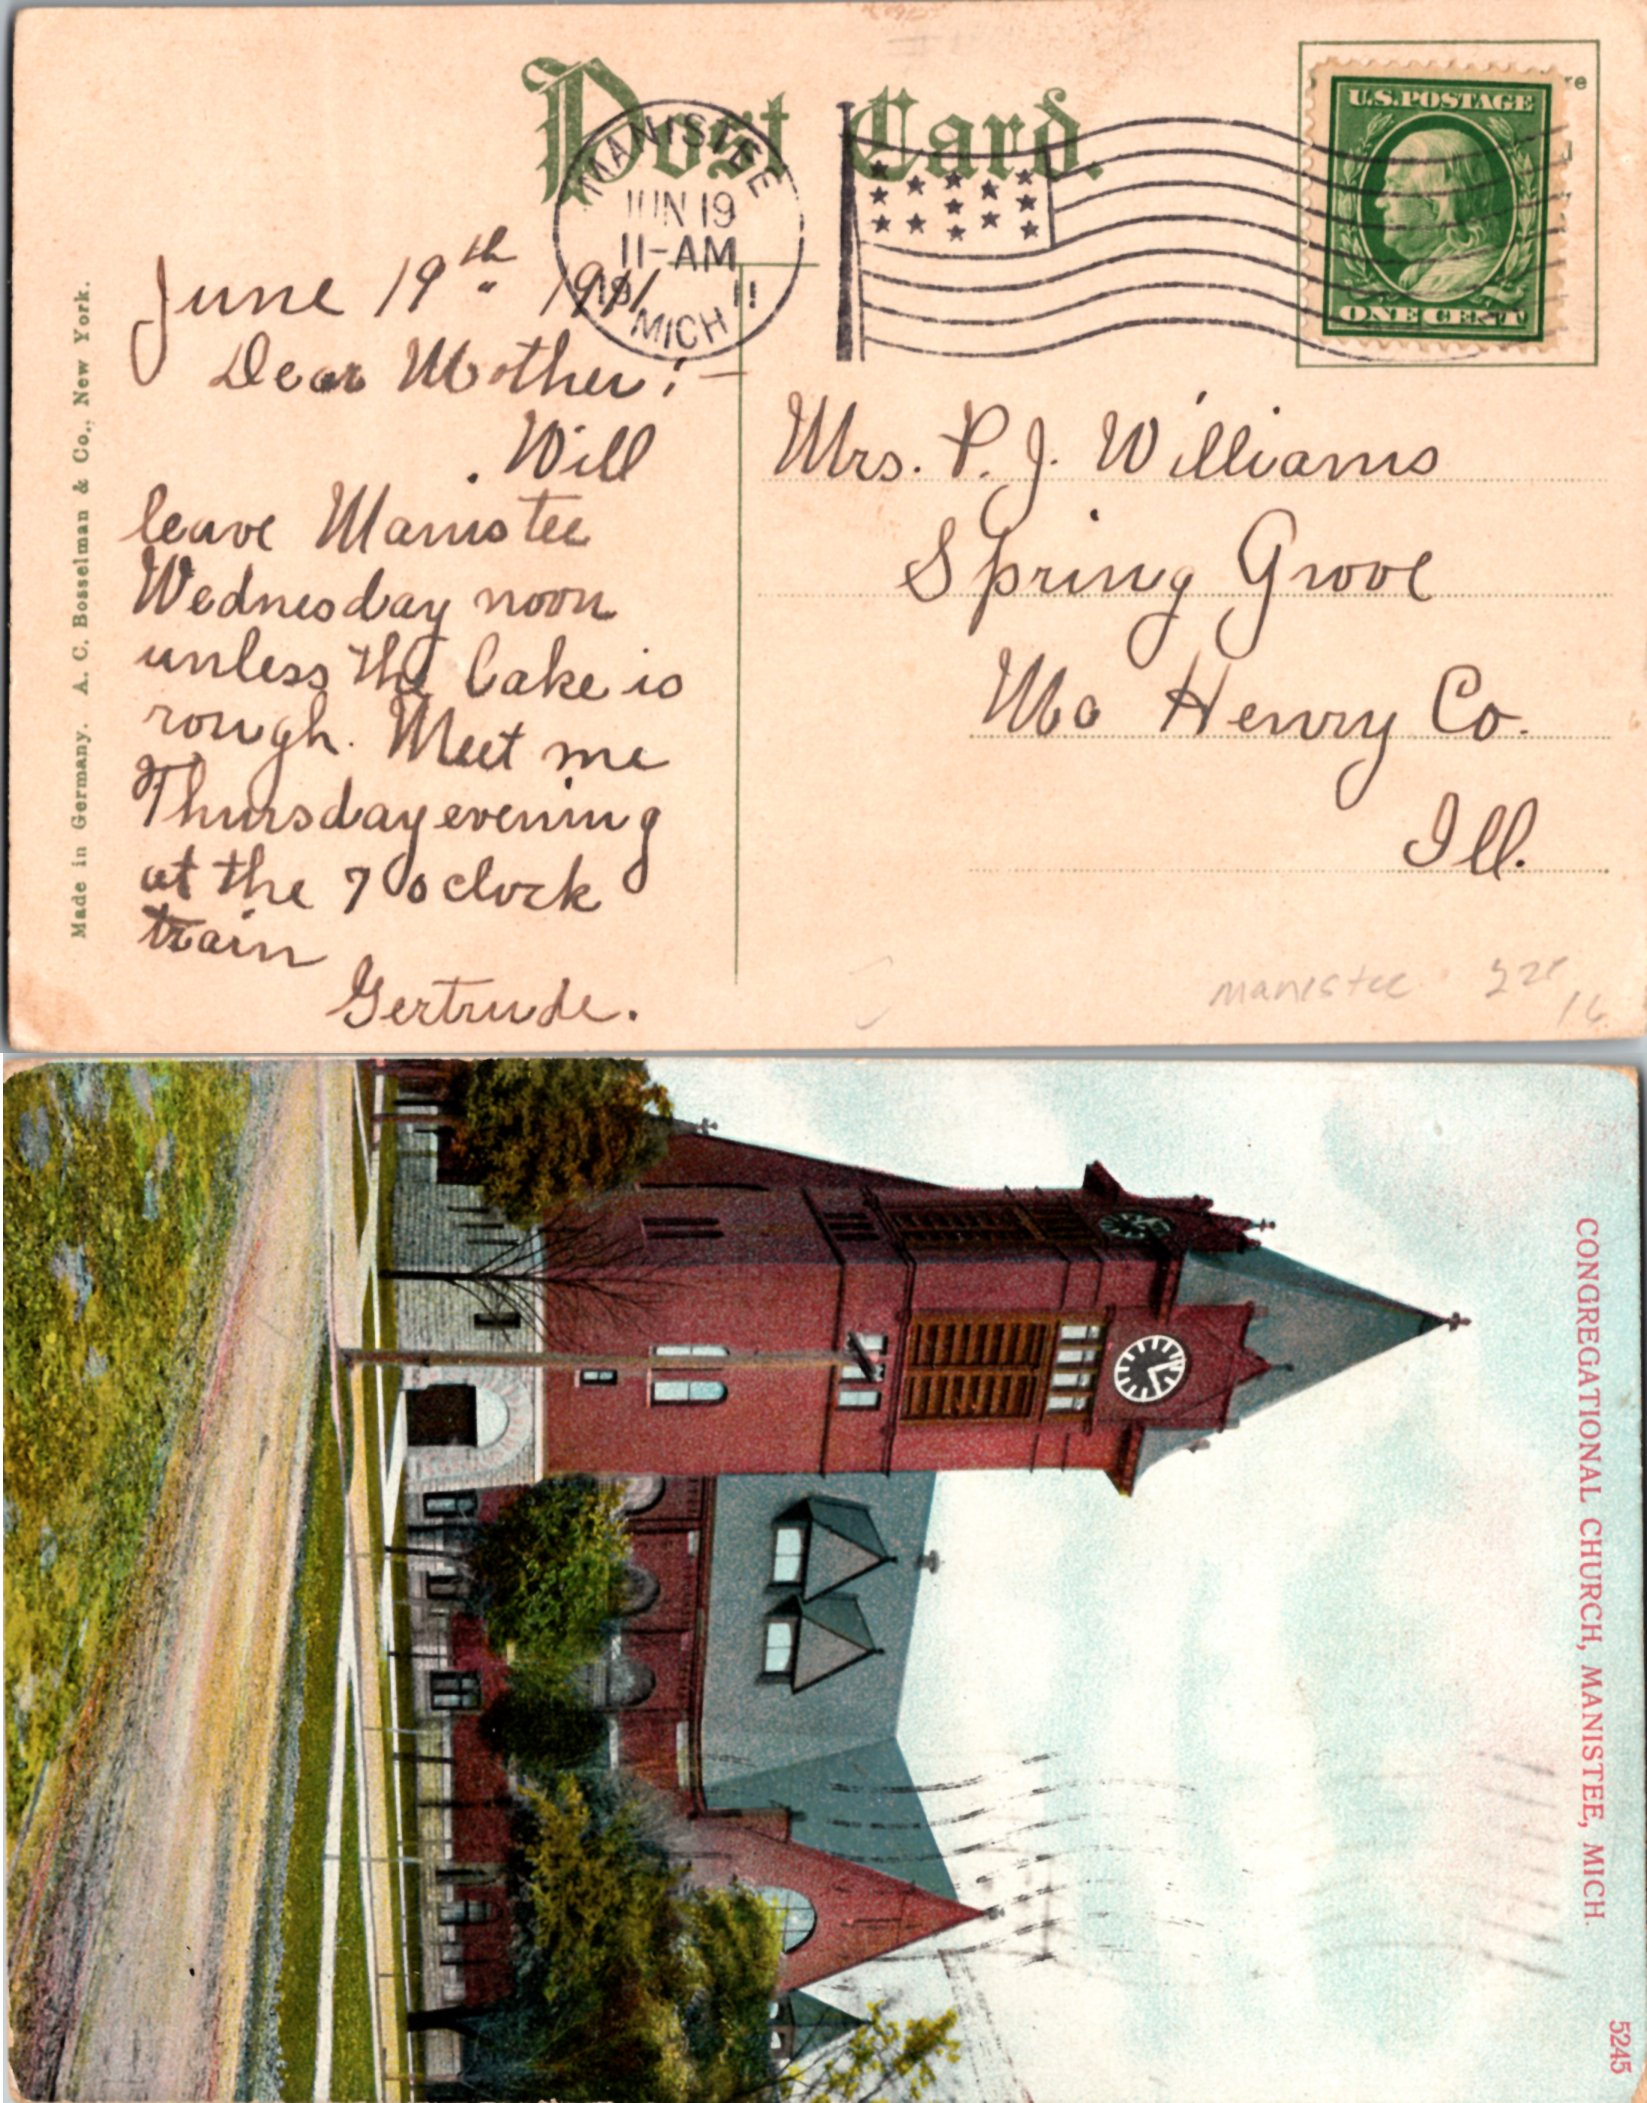 Post Card.
re
U.S. POSTAGE
ONE CENT
MANISTEE
JUN 19
11-AM
11
MICH
June 19th 1911
Dear Mother:—
Will
leave Manistee
Wednesday noon
unless the Lake is
rough. Meet me
Thursday evening
at the 7 o clock
train
Gertrude.
Mrs. P. J. Williams
Spring Grove
Mc Henry Co.
Ill.
Made in Germany. A. C. Bosselman & Co., New York.
manistee
CONGREGATIONAL CHURCH, MANISTEE, MICH.
5245